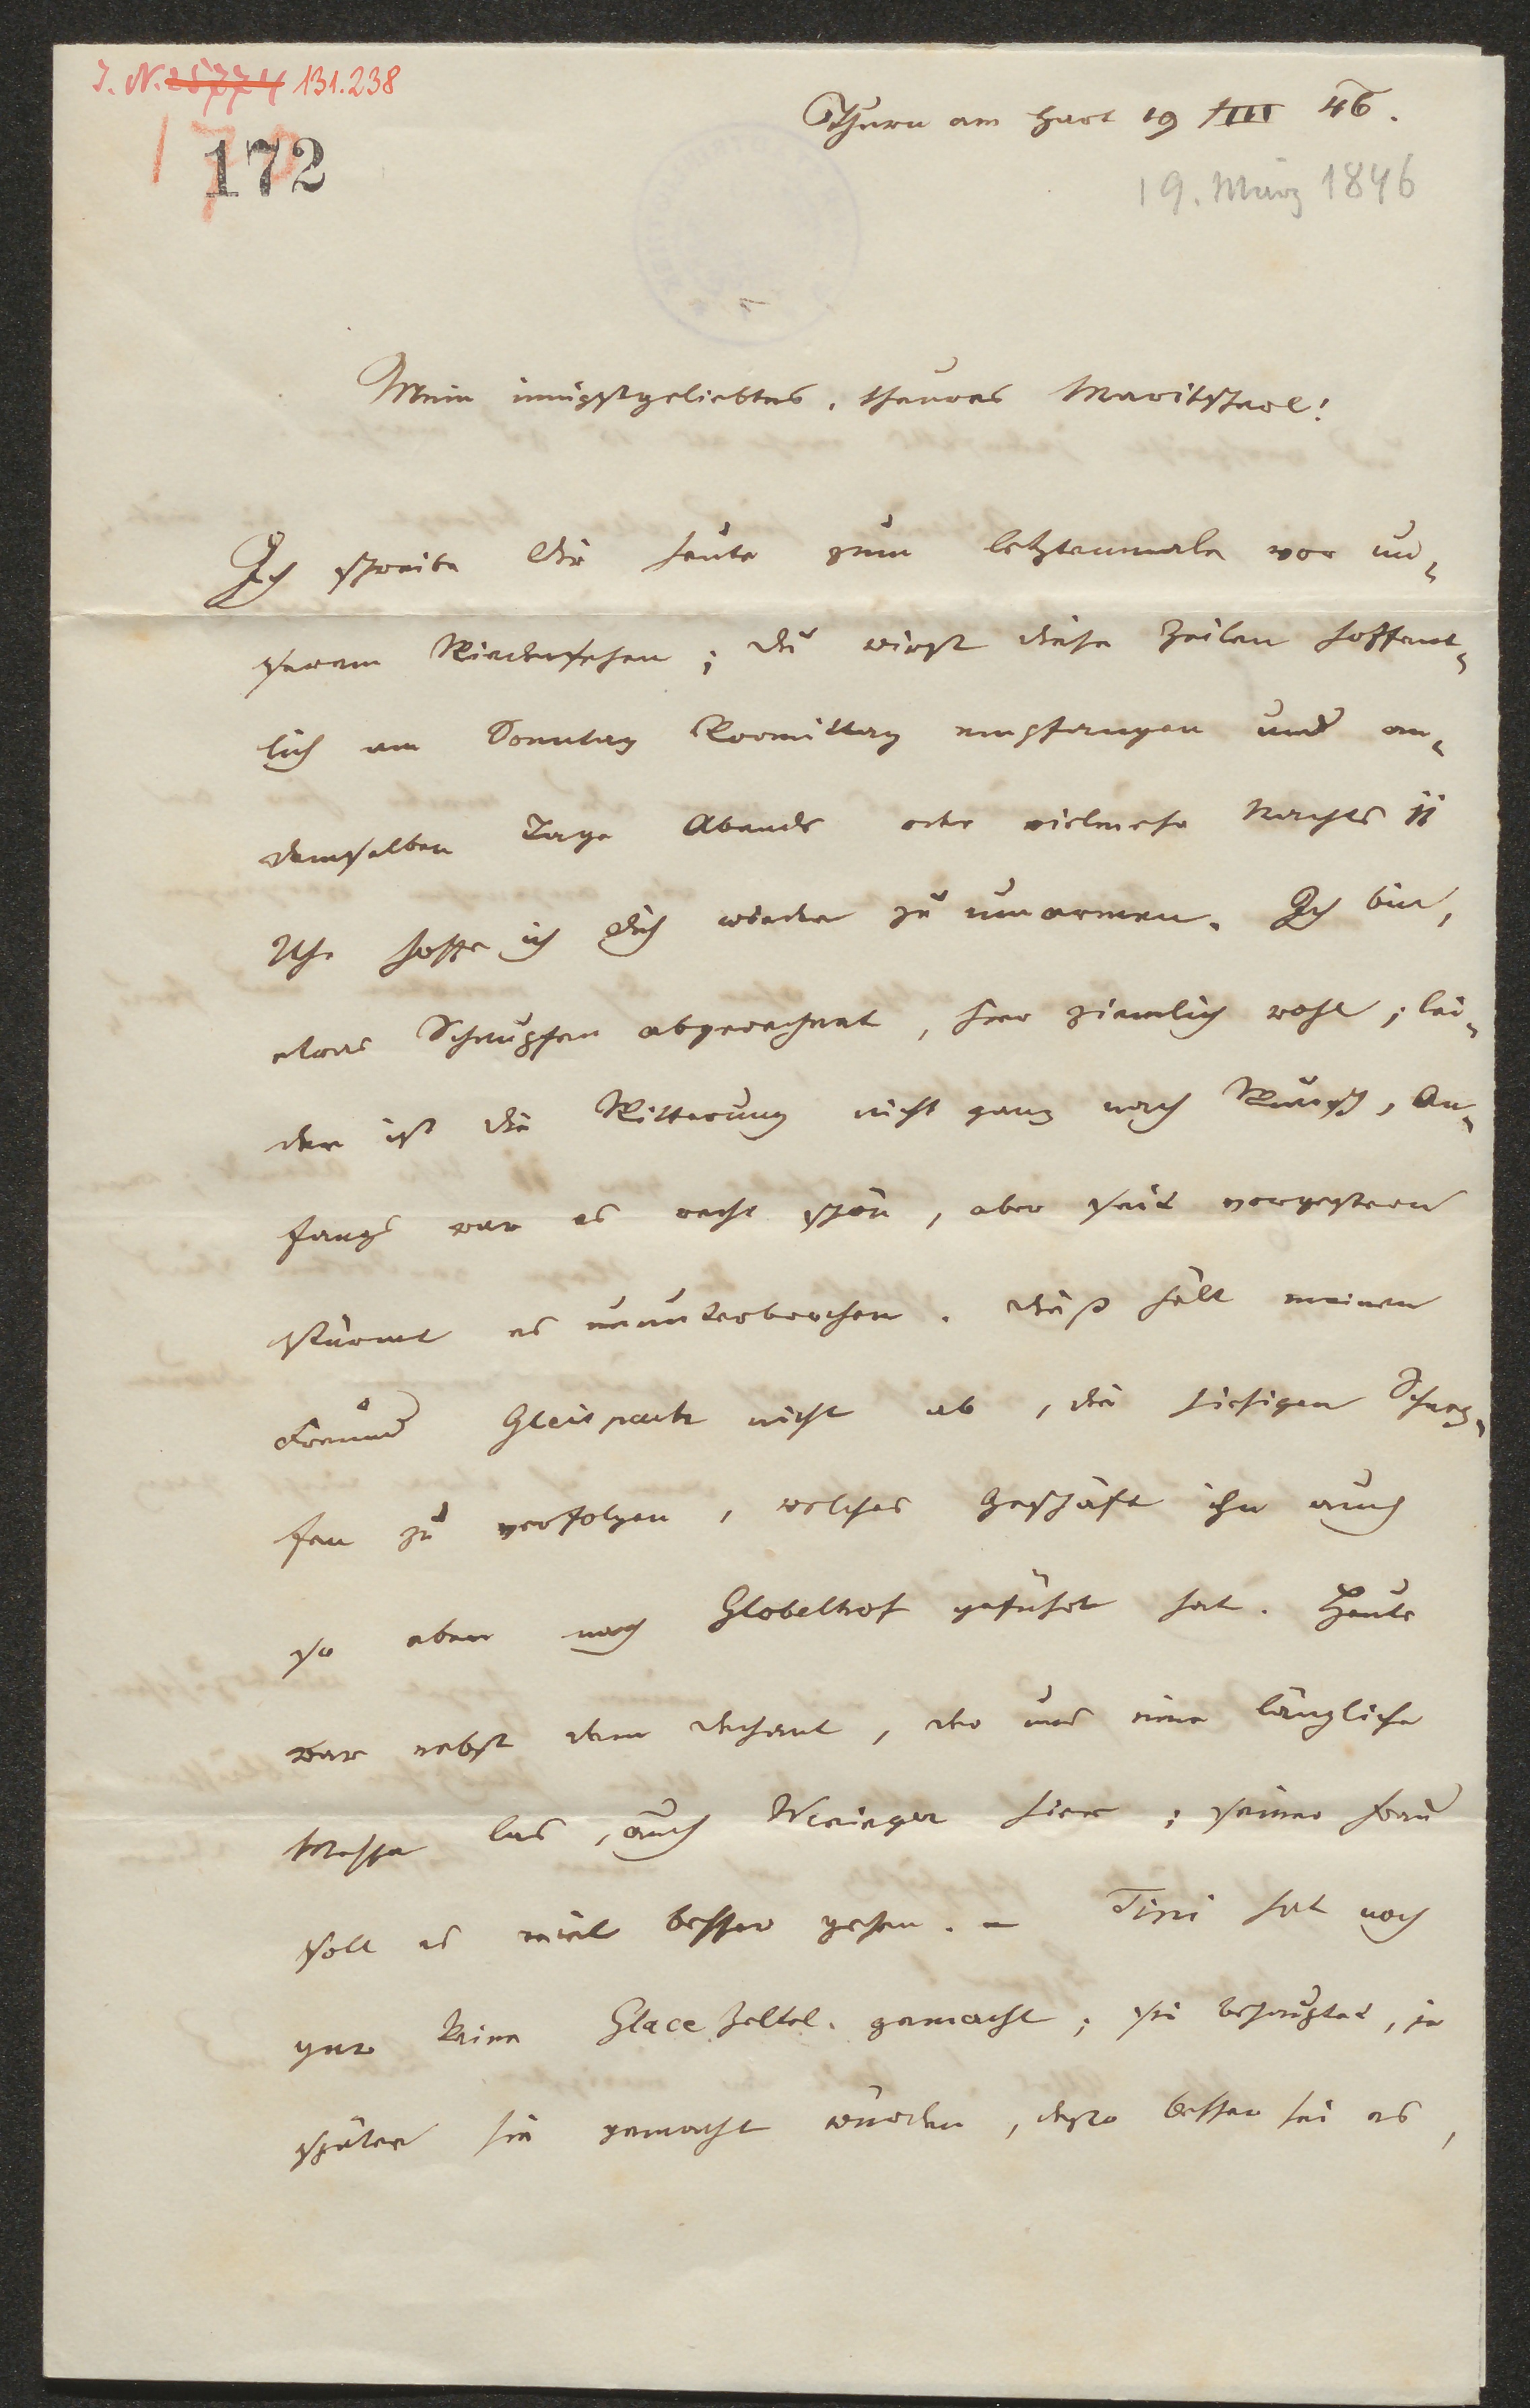 I. N. 25774 131.238
172
Thurn am Hart 19/III 46.
19. März 1846
Mein innigstgeliebtes, theures Maritscherl!
Ich schreibe Dir heute zum letztenmale vor un-
serem Wiedersehen; Du wirst diese Zeilen hoffent-
lich am Sonntag Vormittag empfangen und an
demselben Tage Abends oder vielmehr Nachts 11
Uhr hoffe ich Dich wieder zu umarmen. Ich bin,
etwas Schnupfen abgerechnet, hier ziemlich wohl; lei-
der ist die Witterung nicht ganz nach Wunsch, An-
fangs war es recht schön, aber seit vorgestern
stürmt es ununterbrochen. Dieß hält meinen
Freund Gleispach nicht ab, die hiesigen Schnep-
fen zu verfolgen, welches Geschäft ihn auch
so eben nach Globelhof geführt hat. Heute
war nebst dem Dechant, der uns eine längliche
Messe las, auch Weninger hier; seiner Frau
soll es viel besser gehen. – Tini hat noch
gar keine Glace Zeltel. gemacht; sie behauptet, je
später sie gemacht würden, desto besser sei es,